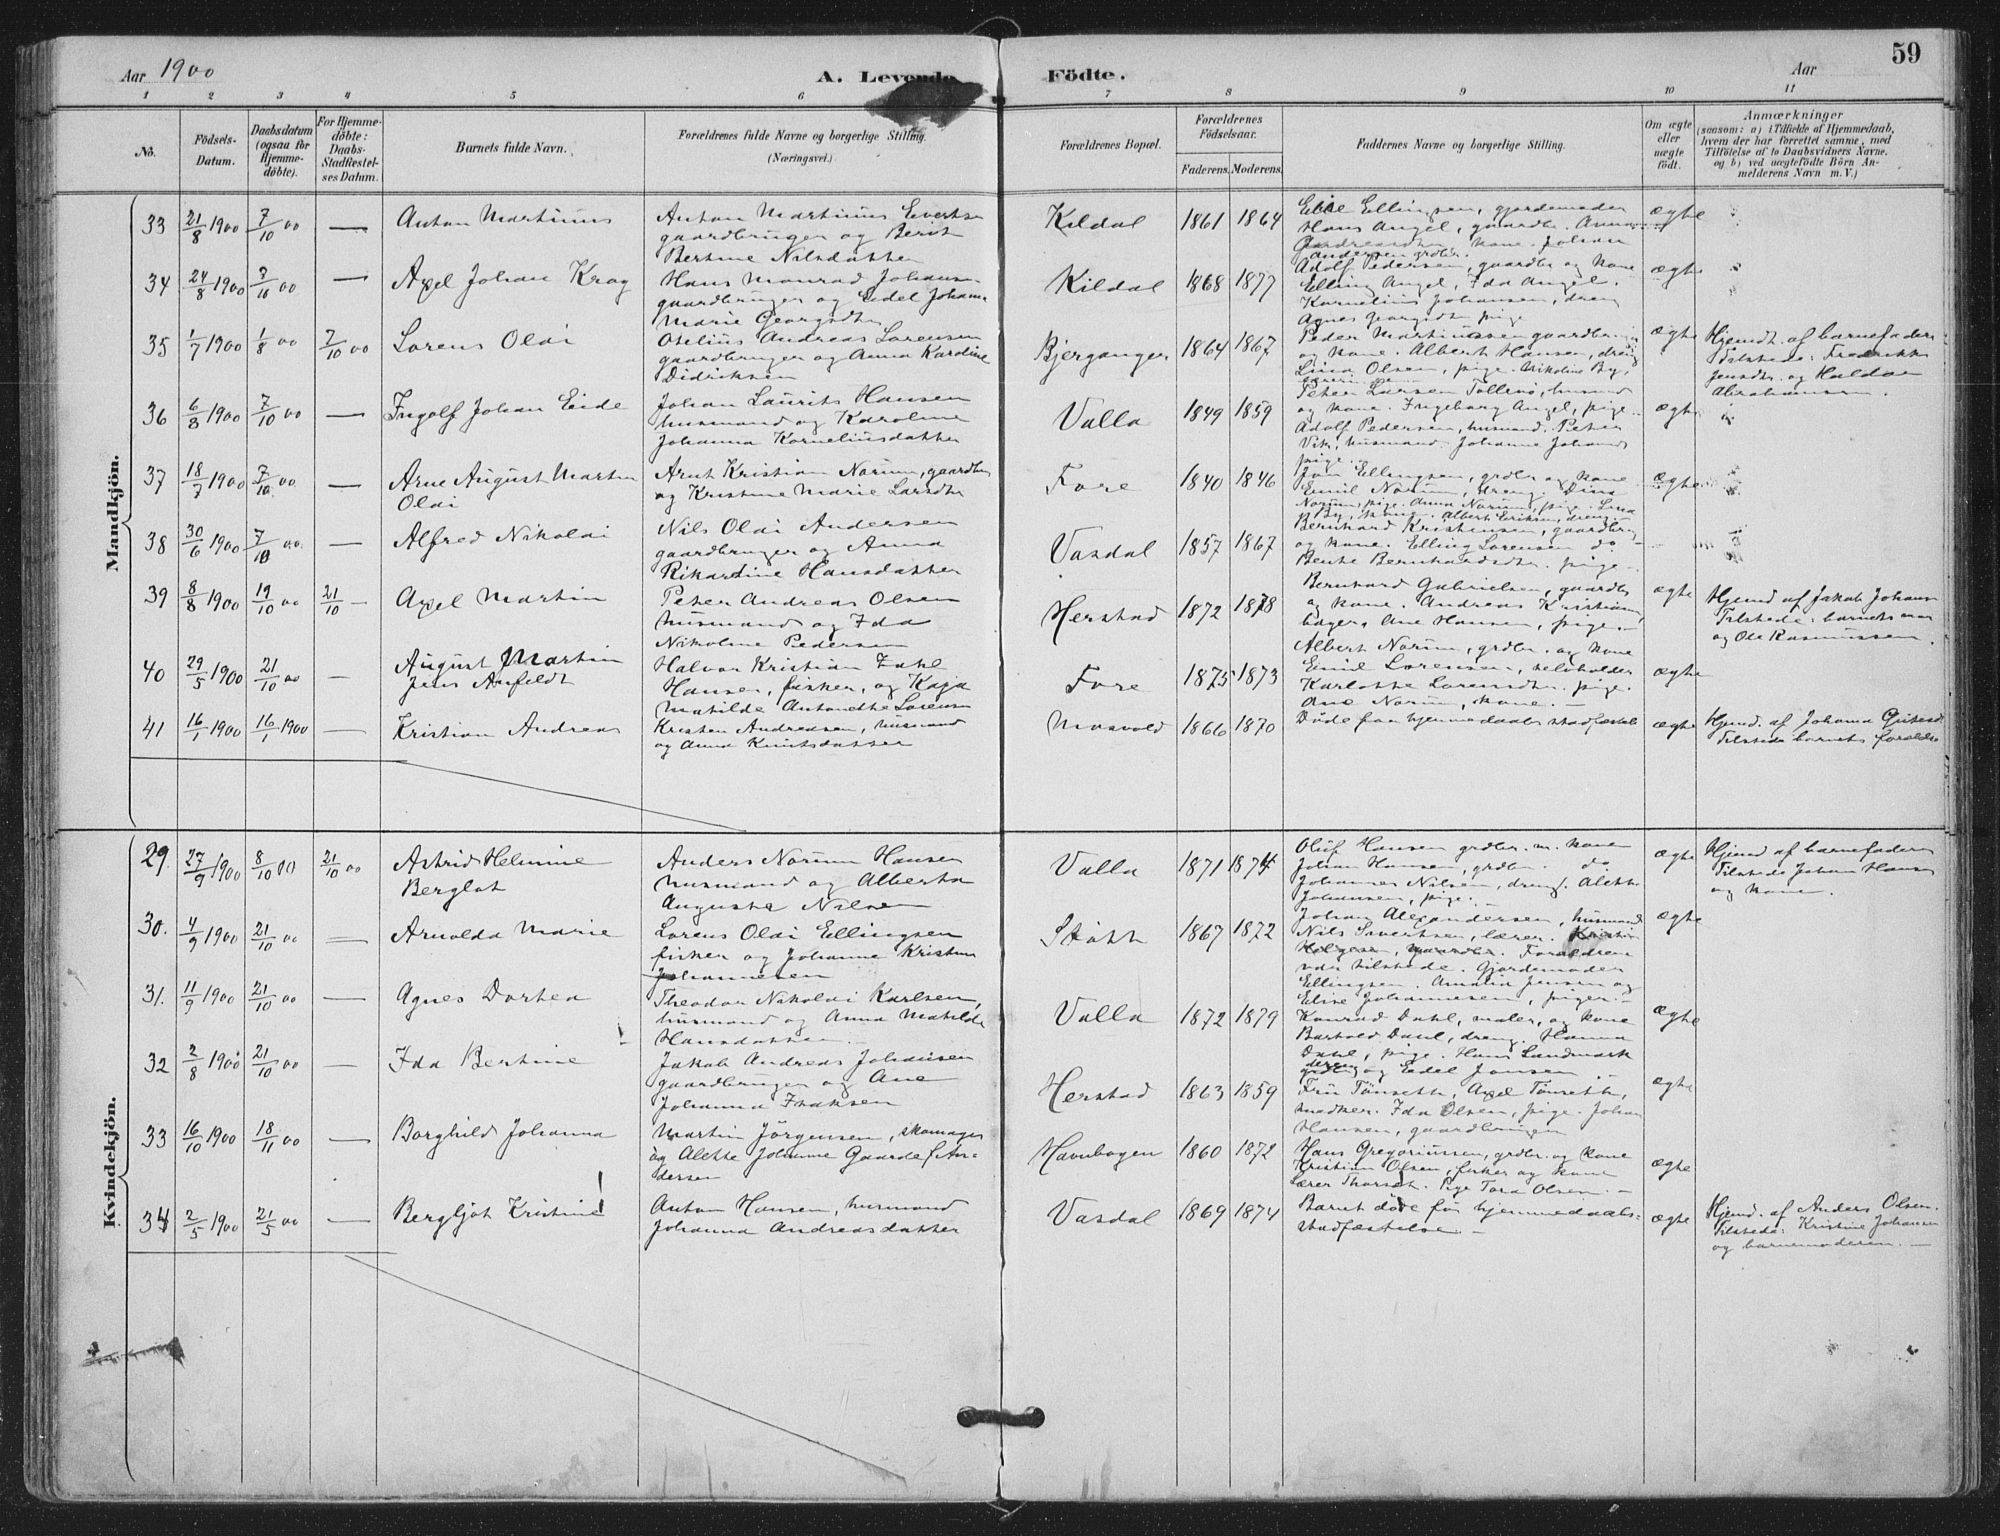 Aar 1900
A. Levende Födte.
Aar
59
1 2 3 4 5 6 7 8 9 10 11
No.
Födsels-Datum.
Daabsdatum (ogsaa för Hjemme-döbte).
For Hjemme-döbte: Daabs-Stadfæstel-ses Datum.
Barnets fulde Navn.
Forældrenes fulde Navne og borgerlige Stilling. (Næringsvei.)
Forældrenes Bopæl.
Forældrenes Födselsaar.
Faderens. Moderens.
Faddernes Navne og borgerlige Stilling.
Om ægte eller uægte födt.
Anmærkninger
(saasom: a) i Tilfælde af Hjemmedaab, hvem der har forrettet samme, med Tilföielse af to Daabsvidners Navne. og b) ved uægtefödte Börn An-melderens Navn m. V.)
Mandkjön.
33 21/8 1900 7/10 00 — Anton Martinus
Anton Martinus Evertsen
gaardbruger og Berit
Bertine Nilsdatter
Kildal 1861 1864
Elise Ellingsen, gjordemoder
Hans Angel, gaardbr. Anna
Andreasdtr, kone. Johan
Andersen grdbr.
ægte
34 24/8 1900 7/10 00 — Axel Johan Krog
Hans Monrad Johansen
gaardbruger og Eidel Johanna
Marie Georgsdtr
Kildal 1868 1877
Adolf Pedersen, gaardbr og kone
Elling Angel, Ida Angel.
Kornelius Johansen, dreng
Agnes Georgsdtr pige
ægte
35 1/7 1900 1/8 00 7/10 00 Lorens Olai
Otelius Andreas Lorensen
gaardbruger og Anna Karoline
Didriksen
Bjerganger 1864 1867
Peder Martinussen gaardbr
og kone. Albert Hansen, dreng
Lina Olsen, pige. Nikoline By,
ægte
Hjemdt. af barnefader
Tilstede: Fredrikke
Jensdtr. og Haldor
Abrahamsen.
36 6/8 1900 7/10 00 — Ingolf Johan Eide
Johan Laurits Hansen
husmand og Karoline
Johanna Korneliusdatter
Valla 1849 1859
Peter Larsen Tollevik, husmand
og kone. Ingeborg Angel, pige
Adolf Pedersen, husmand. Peter
Vik, husmand. Johanne Johansd
pige.
ægte
37 18/7 1900 7/10 00 — Arne August Martin
Olai
Arnt Kristian Norum, gaardbr
og Kristine Marie Larsdtr
Fore 1840 1846
Jon Ellingsen, grdbr og kone
Emil Norum, dreng. Dina
Norum, pige. Anna Norum, pige. Lina
By, pige. Albert Eriksen, dreng
ægte
38 30/6 1900 7/10 00 — Alfred Nikolai
Nils Olai Andersen
gaardbruger og Anna
Rikardine Hansdatter
Vasdal 1857 1867
Bernhard Kristensen, gaardbr
og kone. Elling Lorensen do
Bente Bernhardsdtr. pige —
39 8/8 1900 19/10 00 21/10 — Axel Martin
Peter Andreas Olsen
husmand og Ida
Nikoline Pedersen
Herstad 1872 1878
Bernhard Gabrielsen, gaardbr
og kone. Andreas Kristians
bager, Ane Hansen, pige. —
ægte
Hjemd af Jakob Johans
Tilstede: barnets mor
og Ole Rasmussen.
40 29/5 1900 21/10 00 — August Martin
Jens Anfeldt
Halvor Kristian Zahl
Hansen, fisker, og Kaja
Matilde Antonette Lorensen
Fore 1875 1873
Albert Norum, grdbr. og kone
Emil Lorensen, selvholder
Karlotte Lorensdtr. pige.
Ane Norum, kone. —
ægte
41 16/1 1900 16/1 1900 — Kristian Andreas
Kristen Andreasen, husmand
og Anna Knutsdatter
Mosvold 1866 1870
Døde før hjemmedaabs stadfæstel
ægte
Hjemd. af Johanna
Tilstede barnets forældre
Kvindekjön.
29. 27/9 1900 8/10 00 21/10 00 Astrid Helmine
Bergliot
Anders Norum Hansen
husmand og Alberta
Augusta Nilsen
Valla 1871 1874
Oluf Hansen grdbr. m. kone
Johan Hansen, grdbr. do
Johannes Nilsen, dreng. Alette
Johansen, pige. —
ægte
Hjemd af barnefaderen
Tilstede Johan Hansen
og kone.
30. 4/9 1900 21/10 00 — Arnolda Marie
Lorens Olai Ellingsen
fisker og Johanne Kristine
Johannesen
Støtt 1867 1872
Johan Alexandersen, husmand
Nils Sivertsen, lærer. Kristin
Helgesen, gaardbr. Forældrene
var tilstede. Gjordemoder
Ellingsen. Amalia Jensen og
Elise Johannesen, piger. —
ægte
31. 11/9 1900 21/10 00 — Agnes Dortea
Theodor Nikolai Karlsen,
husmand og Anna Matilde
Hansdatter. —
Valla 1872 1879
Konrad Dahl, maler, og kone
Bartold Dahl, dreng. Hanna
Dahl, pige. Hans Landmark
dreng og Eidel Jensen
ægte
32 2/8 1900 21/10 00 — Ida Bertine
Jakob Andreas Johansen
gaardbruger og Ane
Johanna Isaksen
Herstad 1863 1859
Fru Tønseth, Axel Tønseth,
snedker. Ida Olsen, pige. Johan
Hansen, gaardbrugen
ægte
33 16/10 1900 18/11 00 — Borghild Johanna
Martin Jörgensen, skomager
og Alette Johanne Gaarde f. An-
dersen
Havnbogen 1860 1872
Hans Gregoriussen, grdbr. og kone
Kristian Olsen, fisker og kone
Lærer Thorset. Pige Tora Olsen. —
ægte
34 2/5 1900 21/5 00 — Bergljot Kristine
Anton Hansen, husmand
Johanna Andreasdatter
Vasdal 1869 1874
Barnet døde før hjemmedaabs-
stadfæstelse. —
ægte
Hjemd. af Anders Olsen.
Tilstede: Kristine Johansen
og barnemoderen. —